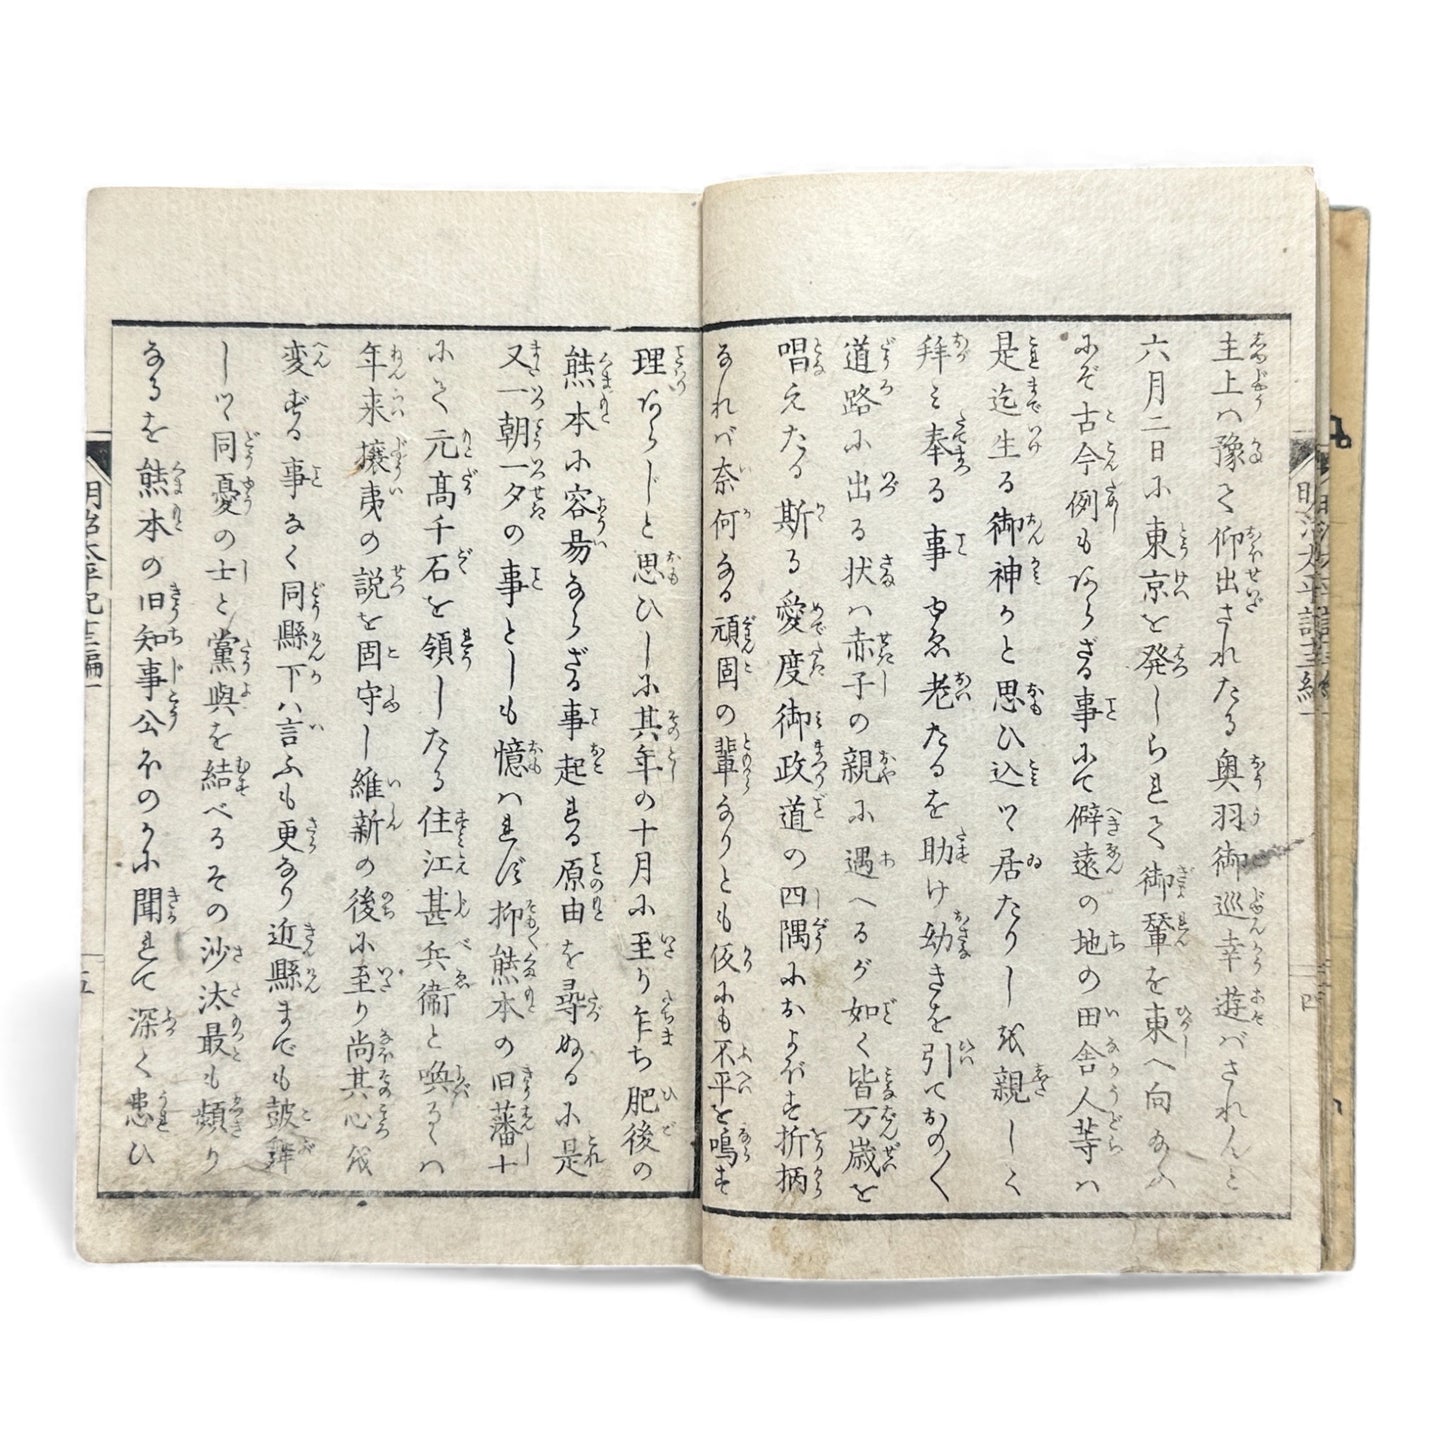 主上ハ豫て仰出されたる奥羽御巡幸遊バされんと
六月二日に東京を発しられて御輦を東へ向たまふ
にぞ古今例もあらざる事にて僻遠の地の田舎人等ハ
是迄生る御神かと思ひ込ツ居たりしを親しく
拜ミ奉る事ゆゑ老たるを助け幼きを引ておの〱
道路に出る状ハ赤子の親に遇へるが如く皆万歳を
唱えたる斯る愛度御政道の四隅におよぼす折柄
なれバ奈何なる頑固の輩なりとも仮にも不平を鳴す
理あらじと思ひしに其年の十月に至り乍ち肥後の
熊本に容易ならざる事起れる原由を尋ぬるに是
又一朝一夕の事としも憶ハれず抑熊本の旧藩士
にて元高千石を領したる住江甚兵衞と喚るゝハ
年来攘夷の説を固守し維新の後に至り尚其心を
変ずる事なく同縣下ハ言ふも更なり近縣までも鼓舞
しツ同憂の士と黨與を結べるその沙汰最も頻り
なるを熊本の旧知事公ほのかに聞れて深く患ひ
明治太平記十三編一
五